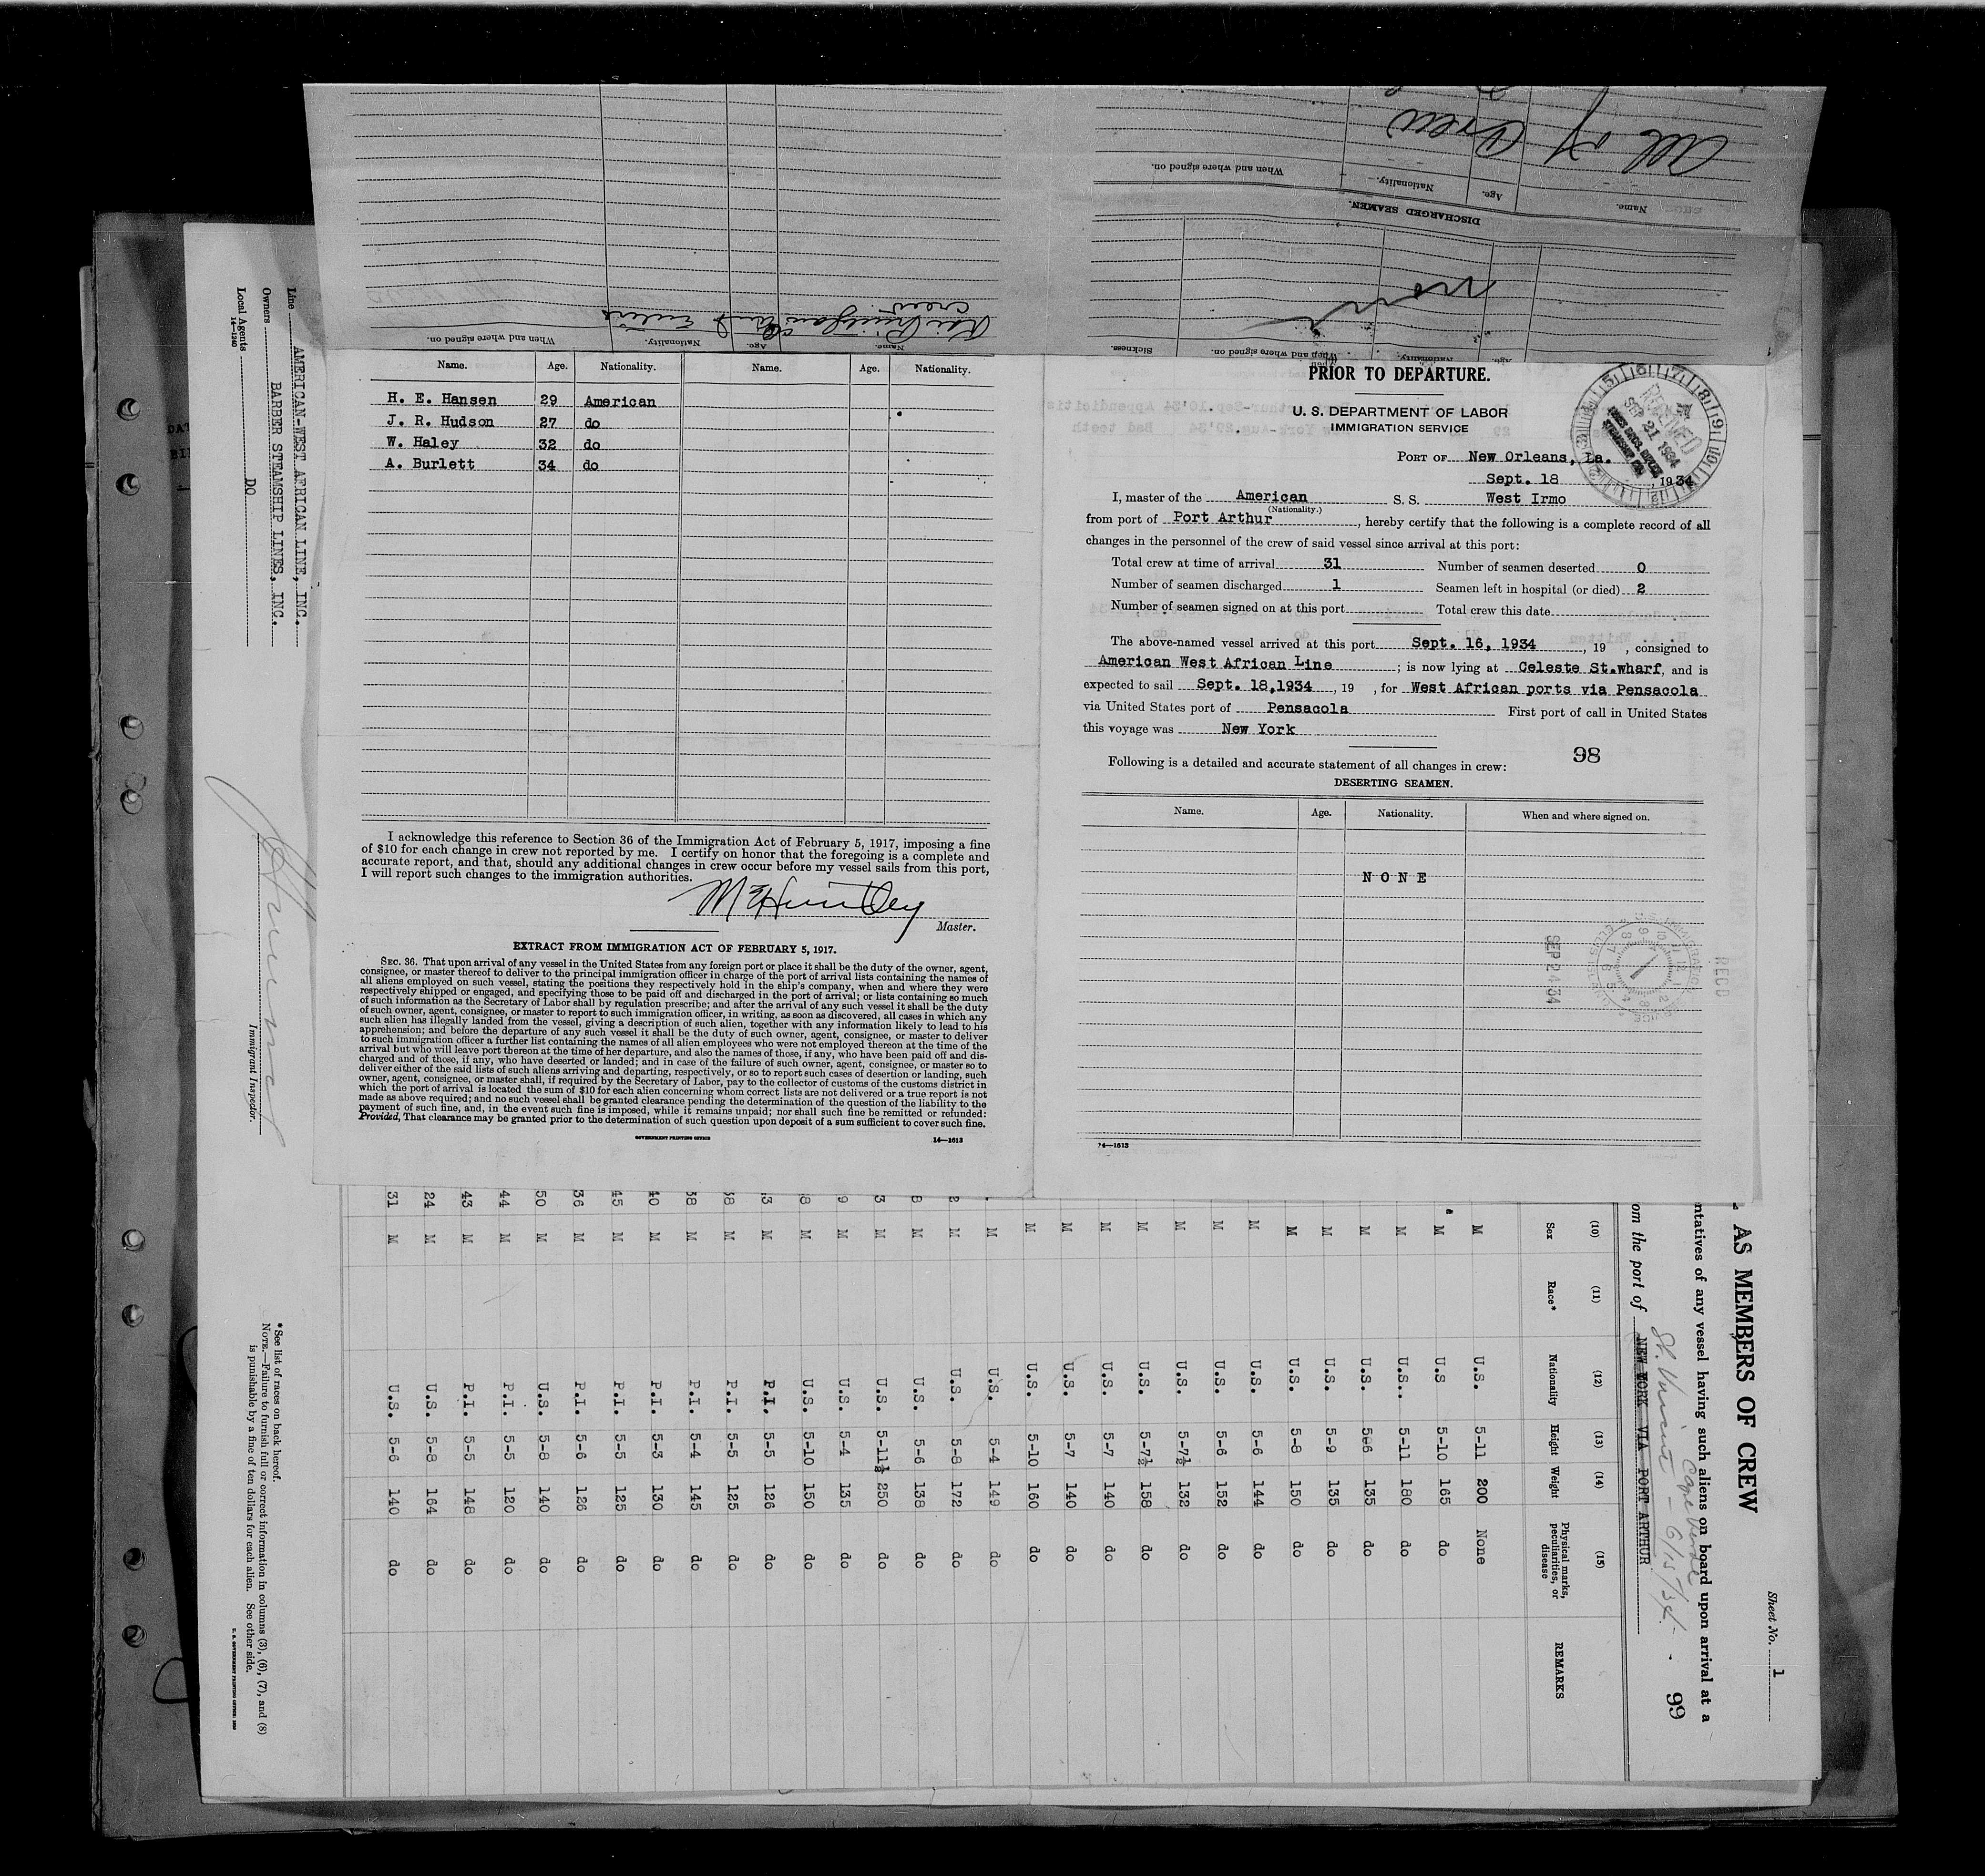 All of Crew
When and where signed on.
Nationality.
Age.
Name.
DISCHARGED SEAMEN.
None
Crew
When and where signed on. Nationality. Age. Name.
Sickness. When and where signed on. Nationality. Age.
Name. Age. Nationality. Name. Age. Nationality.
H. E. Hansen 29 American
J. R. Hudson 27 do
W. Haley 32 do
A. Burlett 34 do
I acknowledge this reference to Section 36 of the Immigration Act of February 5, 1917, imposing a fine
of $10 for each change in crew not reported by me. I certify on honor that the foregoing is a complete and
accurate report, and that, should any additional changes in crew occur before my vessel sails from this port,
I will report such changes to the immigration authorities.
Master.
EXTRACT FROM IMMIGRATION ACT OF FEBRUARY 5, 1917.
SEC. 36. That upon arrival of any vessel in the United States from any foreign port or place it shall be the duty of the owner, agent,
consignee, or master thereof to deliver to the principal immigration officer in charge of the port of arrival lists containing the names of
all aliens employed on such vessel, stating the positions they respectively hold in the ship's company, when and where they were
respectively shipped or engaged, and specifying those to be paid off and discharged in the port of arrival; or lists containing so much
of such information as the Secretary of Labor shall by regulation prescribe; and after the arrival of any such vessel it shall be the duty
of such owner, agent, consignee, or master to report to such immigration officer, in writing, as soon as discovered, all cases in which any
such alien has illegally landed from the vessel, giving a description of such alien, together with any information likely to lead to his
apprehension; and before the departure of any such vessel it shall be the duty of such owner, agent, consignee, or master to deliver
to such immigration officer a further list containing the names of all alien employees who were not employed thereon at the time of the
arrival but who will leave port thereon at the time of her departure, and also the names of those, if any, who have been paid off and dis-
charged and of those, if any, who have deserted or landed; and in case of the failure of such owner, agent, consignee, or master so to
deliver either of the said lists of such aliens arriving and departing, respectively, or so to report such cases of desertion or landing, such
owner, agent, consignee, or master shall, if required by the Secretary of Labor, pay to the collector of customs of the customs district in
which the port of arrival is located the sum of $10 for each alien concerning whom correct lists are not delivered or a true report is not
made as above required; and no such vessel shall be granted clearance pending the determination of the question of the liability to the
payment of such fine, and, in the event such fine is imposed, while it remains unpaid; nor shall such fine be remitted or refunded:
Provided, That clearance may be granted prior to the determination of such question upon deposit of a sum sufficient to cover such fine.
GOVERNMENT PRINTING OFFICE 14—1613
PRIOR TO DEPARTURE.
U. S. DEPARTMENT OF LABOR
IMMIGRATION SERVICE
RECEIVED
SEP 21 1934
PORT OF New Orleans, La.
Sept. 18, 1934
I, master of the American S. S. West Irmo
(Nationality.)
from port of Port Arthur, hereby certify that the following is a complete record of all
changes in the personnel of the crew of said vessel since arrival at this port:
Total crew at time of arrival 31 Number of seamen deserted 0
Number of seamen discharged 1 Seamen left in hospital (or died) 2
Number of seamen signed on at this port Total crew this date
The above-named vessel arrived at this port Sept. 16, 1934, 19 , consigned to
American West African Line; is now lying at Celeste St.wharf, and is
expected to sail Sept. 18,1934, 19 , for West African ports via Pensacola
via United States port of Pensacola First port of call in United States
this voyage was New York
98
Following is a detailed and accurate statement of all changes in crew:
DESERTING SEAMEN.
Name. Age. Nationality. When and where signed on.
NONE
SEP 24 34
RECD
14—1613
Line AMERICAN-WEST AFRICAN LINE, INC.
Owners BARBER STEAMSHIP LINES, INC.
Local Agents DO
14—1240
Immigrant Inspector.
Sheet No. 1
AS MEMBERS OF CREW
ntatives of any vessel having such aliens on board upon arrival at a
Cape Verde
om the port of NEW WORK VIA PORT ARTHUR
St. Vincent - 6/15/34
99
(10) (11) (12) (13) (14) (15)
Sex Race* Nationality Height Weight Physical marks, peculiarities, or disease REMARKS
M U.S. 5-11 200 None
M U.S 5-10 165 do
M U.S.. 5-11 180 do
M U.S. 5-6 135 do
M U.S. 5-9 135 do
M U.S. 5-8 150 do
M U.S. 5-6 144 do
M U.S. 5-6 152 do
M U.S. 5-7½ 132 do
M U.S. 5-7½ 158 do
M U.S. 5-7 140 do
M U.S. 5-7 140 do
M U.S. 5-10 160 do
M U.S. 5-4 149 do
2 M U.S. 5-8 172 do
8 M U.S. 5-6 138 do
3 M U.S. 5-11½ 250 do
9 M U.S. 5-4 135 do
8 M U.S. 5-10 150 do
3 M P.I. 5-5 126 do
38 M P.I. 5-5 125 do
38 M P.I. 5-4 145 do
40 M P.I. 5-3 130 do
45 M P.I. 5-5 125 do
36 M P.I. 5-6 126 do
50 M U.S. 5-8 140 do
44 M P.I. 5-5 120 do
43 M P.I. 5-5 148 do
24 M U.S. 5-8 164 do
31 M U.S. 5-6 140 do
*See list of races on back hereof.
NOTE.—Failure to furnish full or correct information in columns (3), (6), (7), and (8)
is punishable by a fine of ten dollars for each alien. See other side.